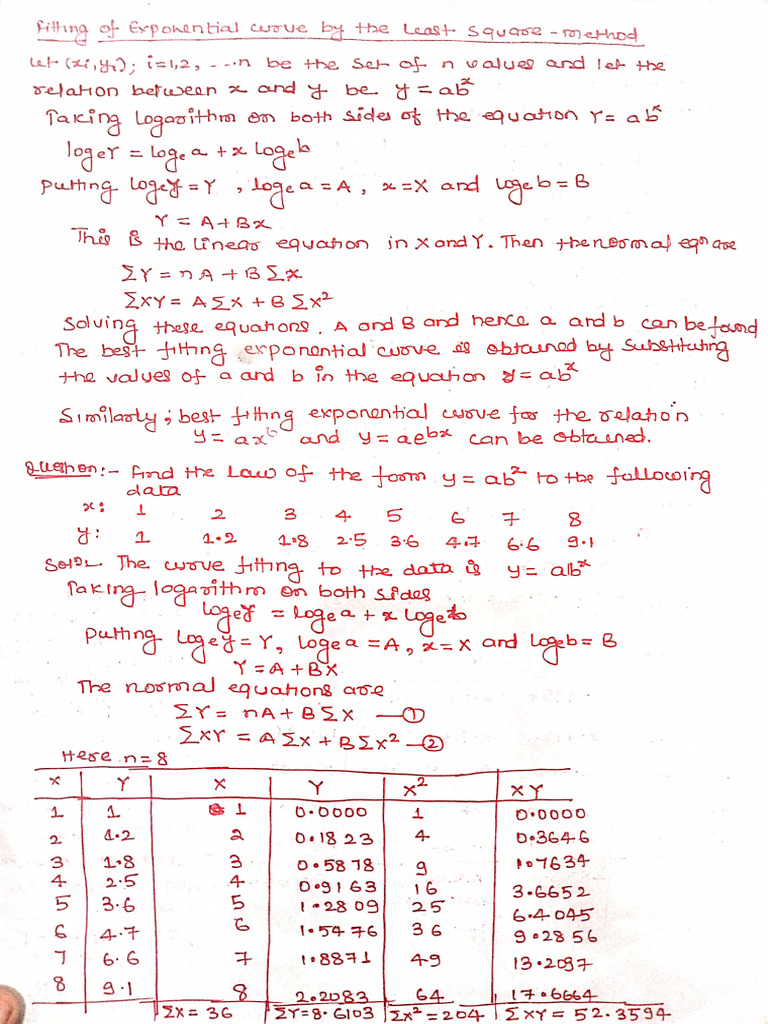 Fitting of Exponential curve by the Least Square-method
Let (xi,yi); i=1,2, ---n be the set of n values and let the
relation between x and y be y = ab^x
Taking Logarithm on both sides of the equation Y= ab^x
logeY = loge a + x Loge b
putting logey=Y , loge a = A , x=X and loge b = B
Y = A+Bx
This is the linear equation in X and Y. Then the normal eqn are
ΣY = nA + BΣx
ΣXY = AΣX + BΣX²
Solving these equations, A and B and hence a and b can be found
The best fitting exponential curve is obtained by substituting
the values of a and b in the equation y = ab^x
Similarly; best fitting exponential curve for the relation
y = ax^b and y = ae^bx can be obtained.
Question:- find the Law of the form y = ab^x to the following
data
x: 1 2 3 4 5 6 7 8
y: 1 1.2 1.8 2.5 3.6 4.7 6.6 9.1
Soln The curve fitting to the data is y = ab^x
Taking logarithm on both sides
logey = loge a + x loge b
putting logey=Y, loge a = A, x=X and loge b = B
Y = A + BX
The normal equations are
ΣY = nA + BΣX —①
ΣXY = AΣX + BΣX² —②
Here n=8
X Y X Y X² XY
1 1 1 0.0000 1 0.0000
2 1.2 2 0.1823 4 0.3646
3 1.8 3 0.5878 9 1.7634
4 2.5 4 0.9163 16 3.6652
5 3.6 5 1.2809 25 6.4045
6 4.7 6 1.5476 36 9.2856
7 6.6 7 1.8871 49 13.2097
8 9.1 8 2.2083 64 17.6664
ΣX = 36 ΣY=8.6103 ΣX²=204 ΣXY = 52.3594